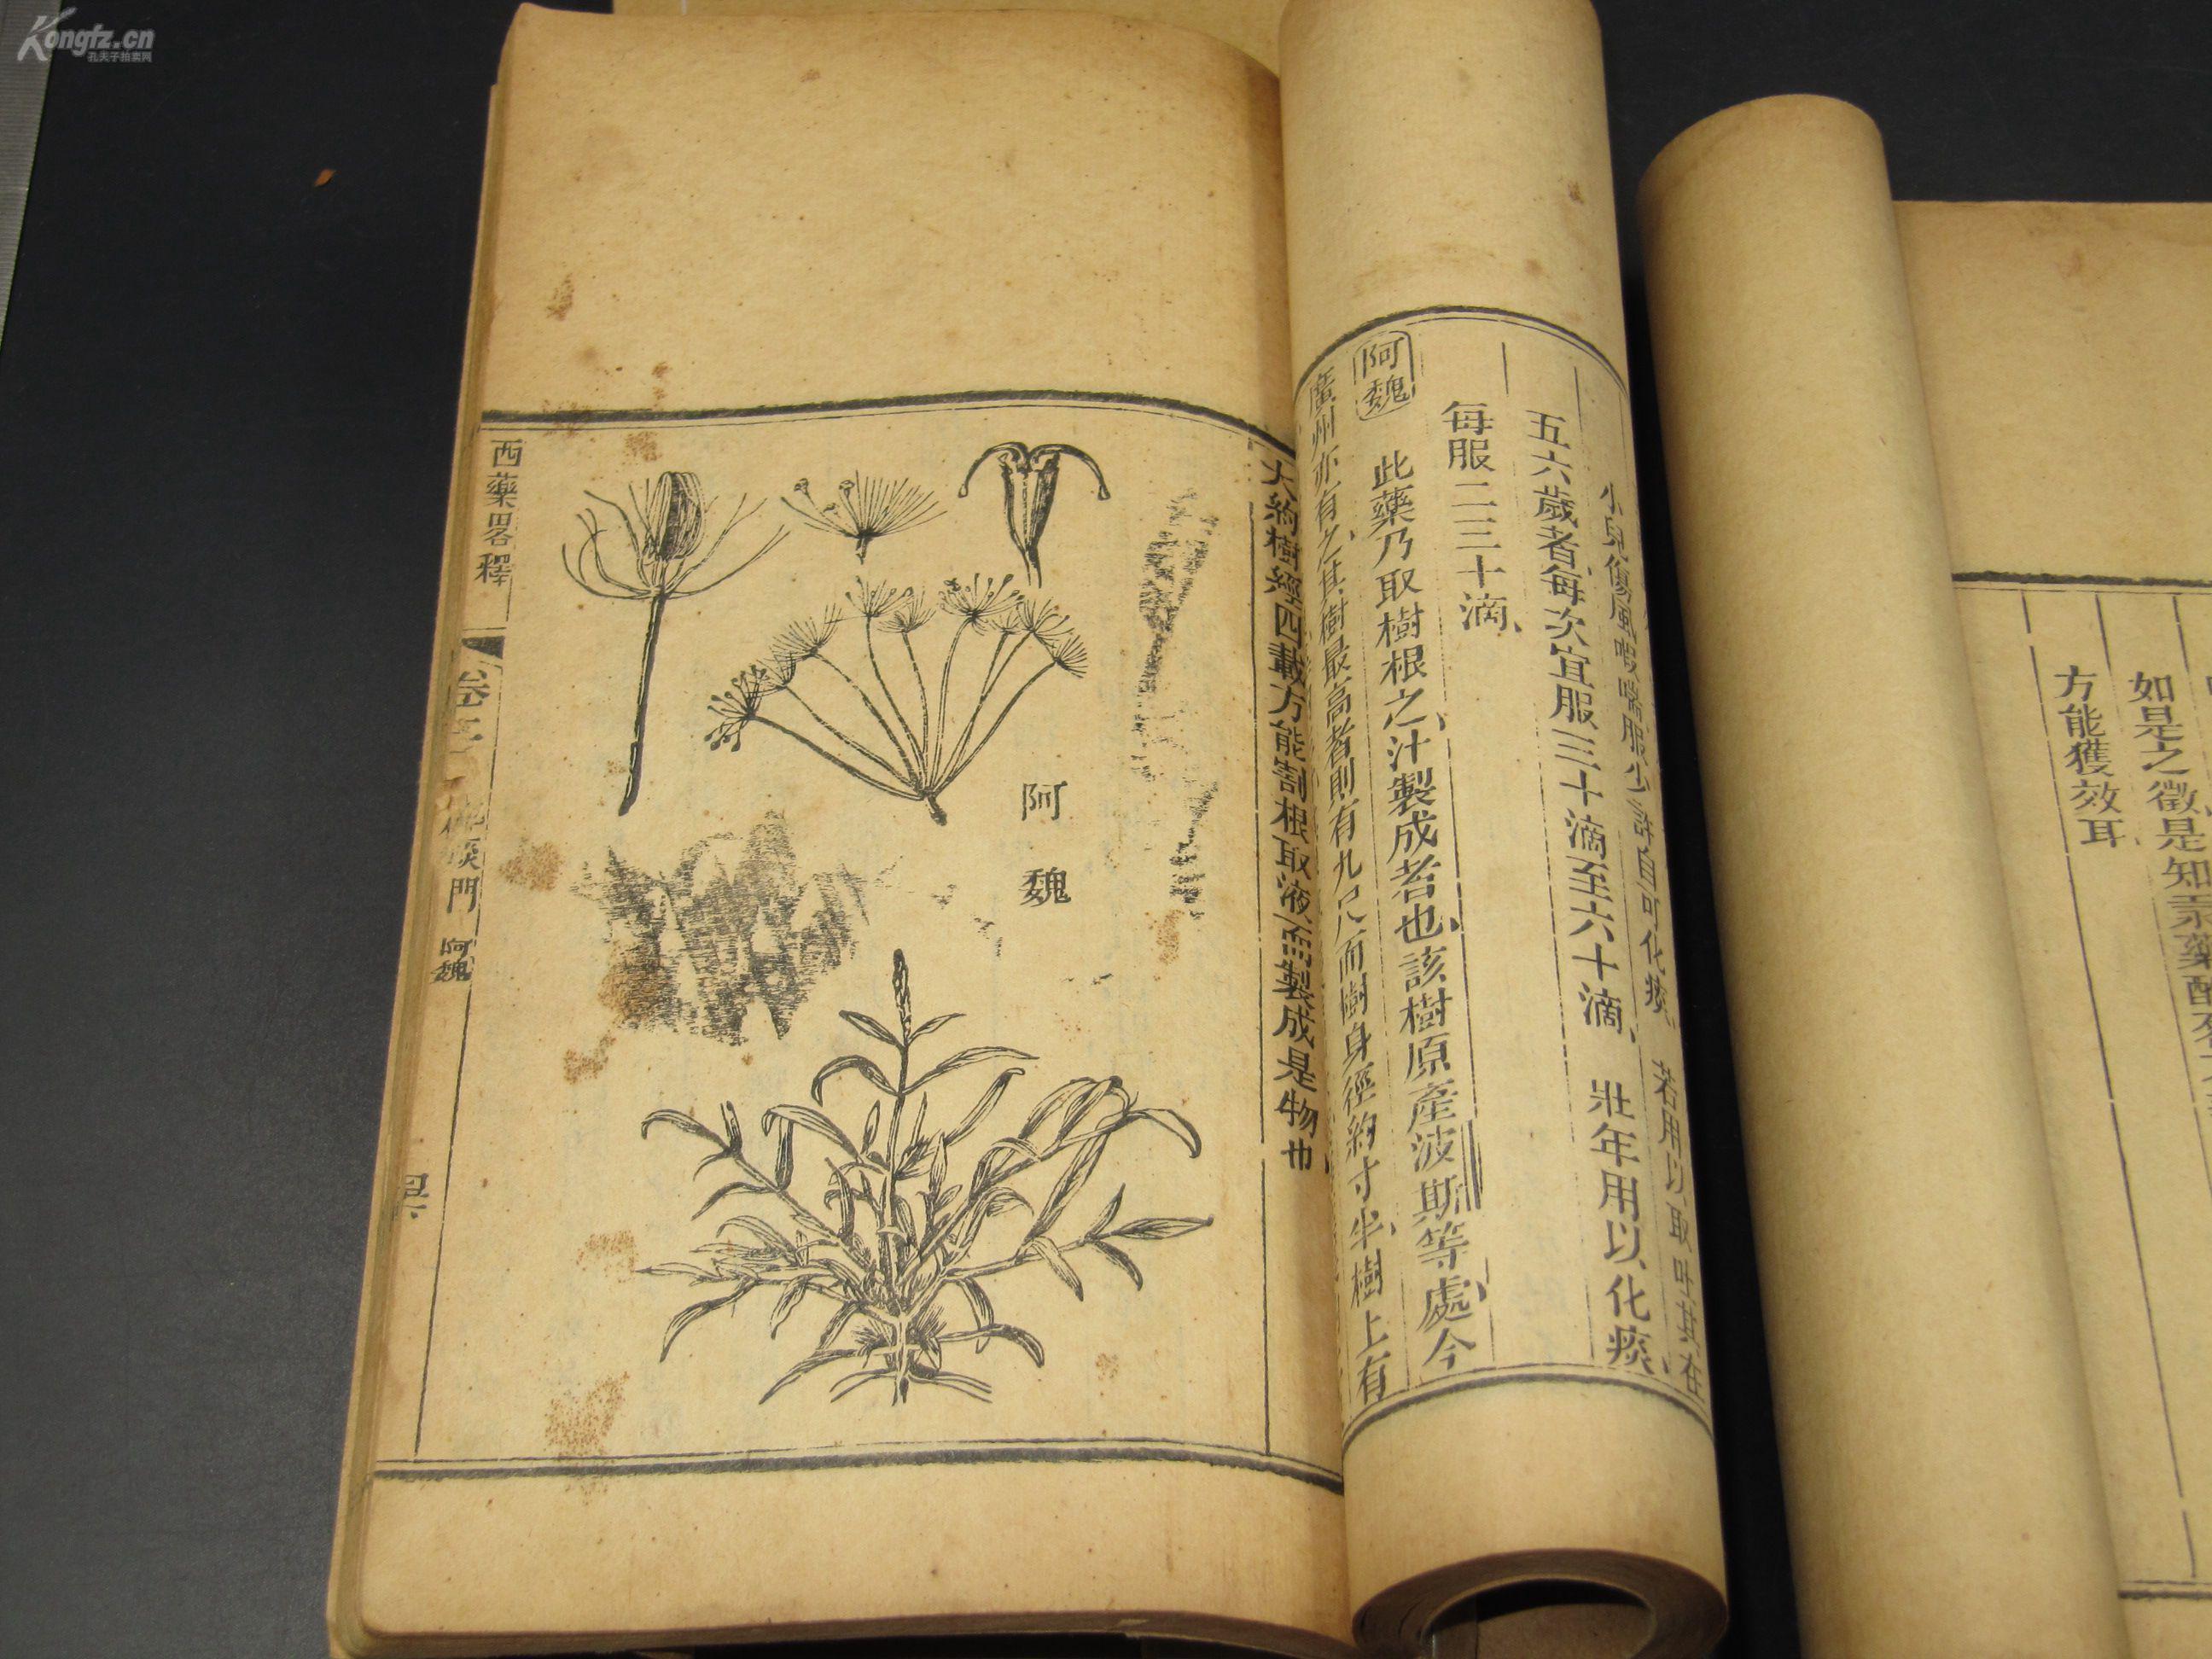 小兒傷風咳喘服少許自可化痰 若用以取吐其
五六歲者每次宜服三十滴至六十滴 壯年用以化痰
每服二三十滴
阿魏 此藥乃取樹根之汁製成者也該樹原產波斯等處今
廣州亦有之其樹最高者則有九尺而樹身徑約寸半樹上有
大約樹經四載方能割根取液而製成是物也
阿魏
西藥畧釋 卷 痰門 阿魏
如是之徵是知汞藥
方能獲效耳
Kongfz.cn
孔夫子拍卖网